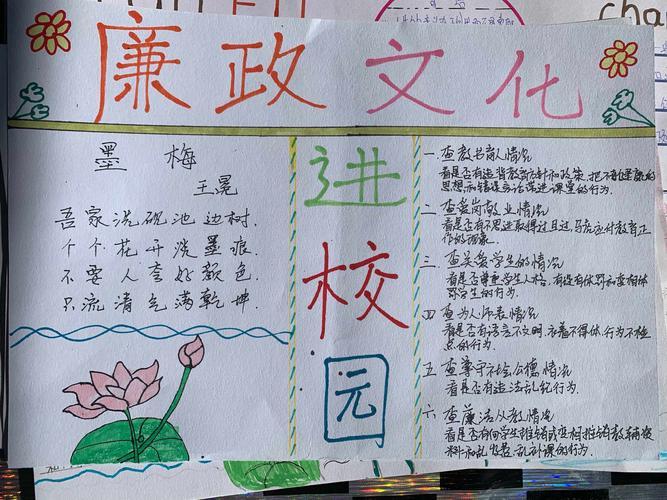 廉政文化
进
校
园
墨梅
王冕
吾家洗砚池边树.
个个花开淡墨痕.
不要人夸好颜色.
只流清气满乾坤.
一.查教书育人情况
看是否有违背教育方针和政策.把不
思想和错误言论带进课堂的行为.
二查爱岗敬业情况
看是否有不思进取得过且过,马虎应付教育工
作的现象.
三.查关爱学生的情况
看是否尊重学生人格.有没有体罚和变相体
罚学生的行为.
四 查为人师表情况
看是否有语言不文明.衣着不得体.行为不检
点的行为.
五 查尊守社会公德情况
看是否有违法乱纪行为.
六 查廉洁从教情况
看是否有向学生推销或变相推销教辅资
料和乱收费.乱补课的行为.
cha